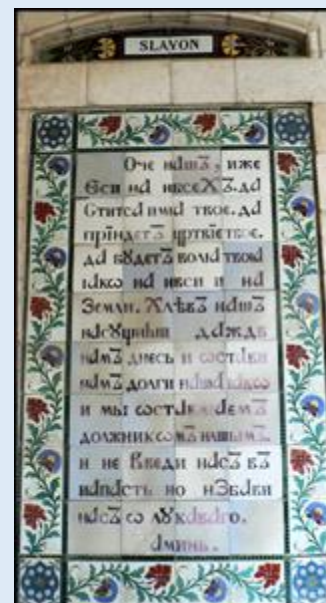 SLAYON
Оче нашъ, иже
Єси на нбсеХъ. да
Стится имѧ твое. да
прїидетъ црткїе твое.
да бꙋдетъ волѧ твоѧ
ꙗкѡ на нбси и на
Земли. Хлѣбъ нашъ
насꙋщныи даждь
намъ днесь и ѡстави
намъ долги нашѧ ꙗкѡ
и мы ѡставлѧемъ
должникѡмъ нашымъ.
и не Введи насъ въ
напасть но иЗбави
насъ ѿ лꙋкаваго.
аминь.